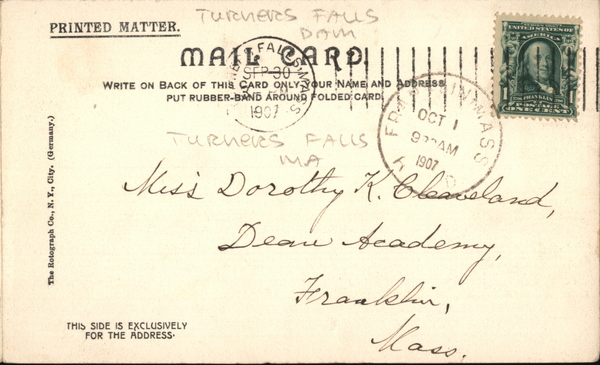 TURNERS FALLS
DAM
PRINTED MATTER.
MAIL CARD.
WRITE ON BACK OF THIS CARD ONLY YOUR NAME AND ADDRESS
PUT RUBBER-BAND AROUND FOLDED CARD.
FALLS MASS
SEP 30
1907
UNITED STATES OF
AMERICA
FRANKLIN
FRANKLIN MASS
OCT 1
AM
1907
TURNERS FALLS
MA
Miss Dorothy K. Cleaveland,
Dean Academy,
Franklin,
Mass.
The Rotograph Co., N. Y., City. (Germany.)
THIS SIDE IS EXCLUSIVELY
FOR THE ADDRESS.